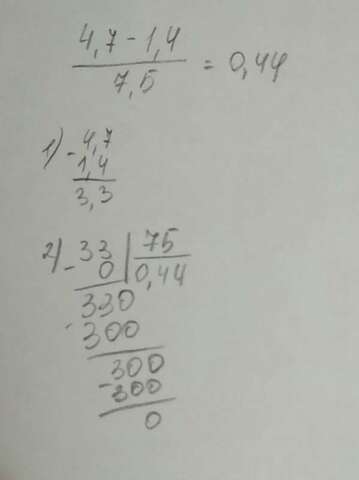 4,7 - 1,4
7,5
= 0,44
1) - 4,7
1,4
3,3
2) - 33 | 75
0 | 0,44
330
- 300
300
- 300
0